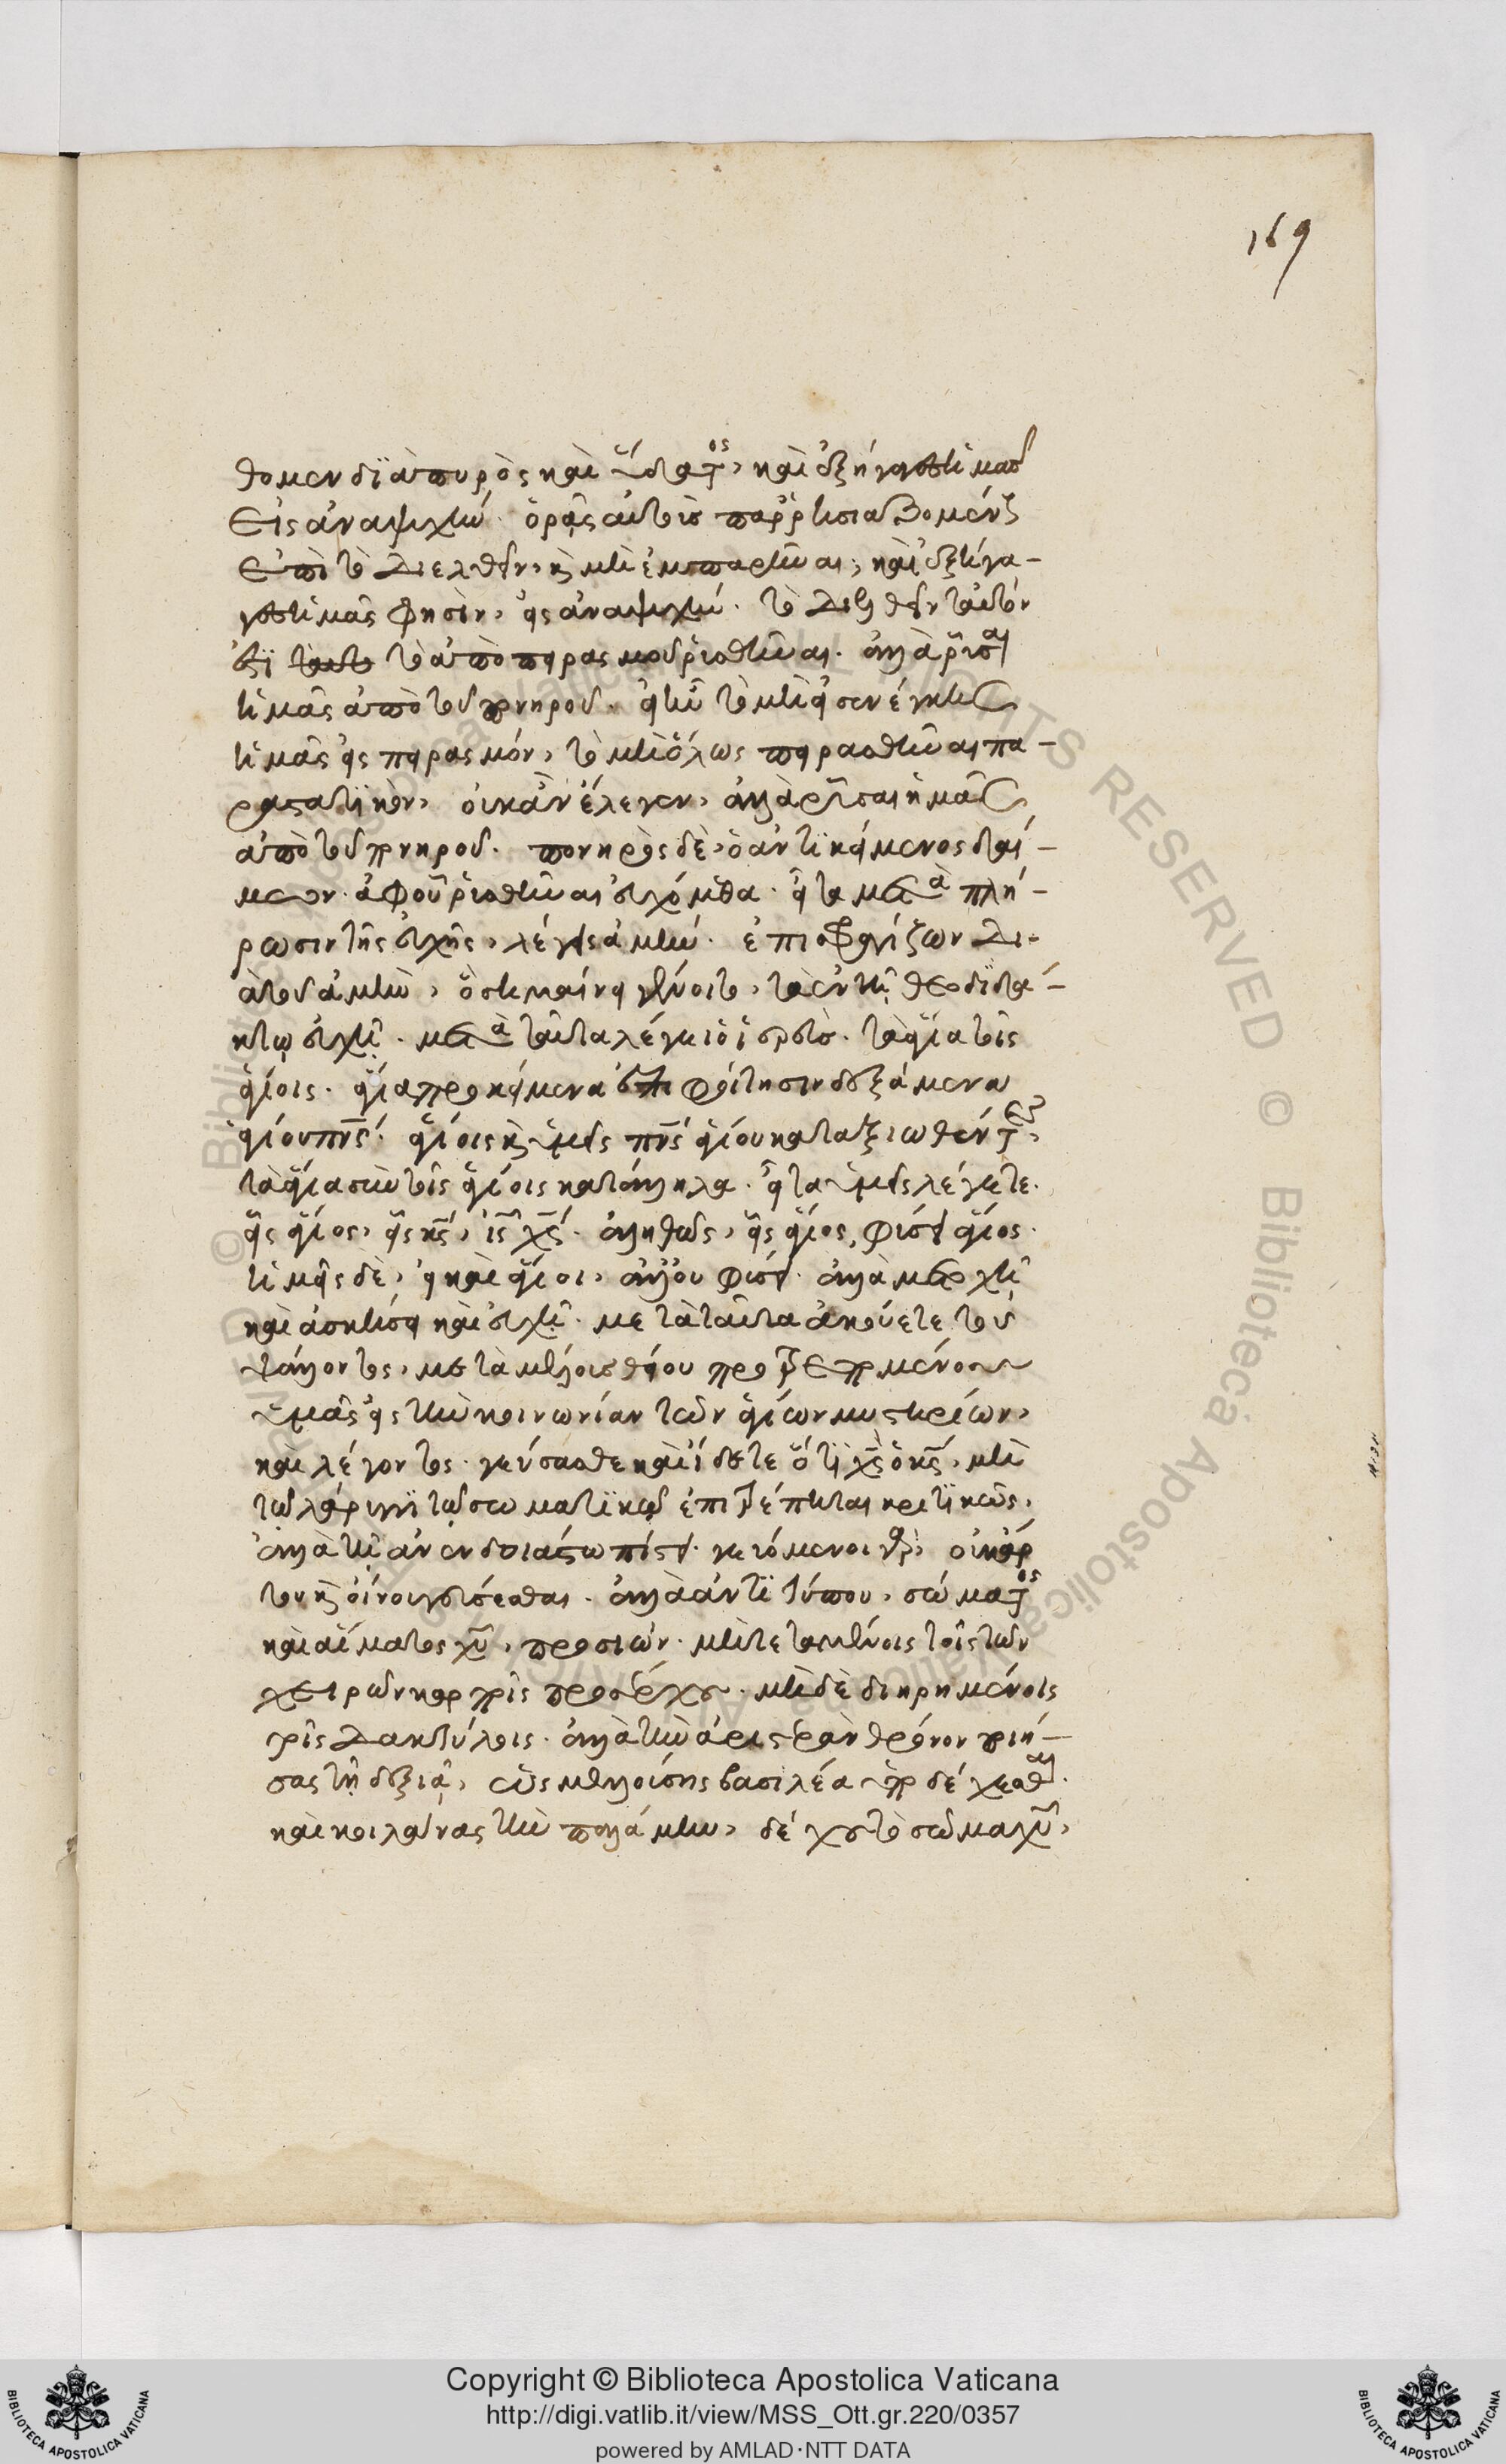 169
θομεν διὰ πυρὸς καὶ ὕδατος, καὶ ἐξήγαγες ἡμᾶς
εἰς ἀναψυχήν. ὁρᾷς αὐτοὺς παρρησιαζομένους
ἐπὶ τὸ διελθεῖν, καὶ μὴ ἐμπαρῆναι; καὶ ἐξήγα-
γες ἡμᾶς φησὶν, εἰς ἀναψυχήν. τὸ διελθεῖν αὐτόν
ἐστι τὸ ἀπὸ πειρασμοῦ ῥυσθῆναι. ἀλλὰ ῥῦσαι
ἡμᾶς ἀπὸ τοῦ πονηροῦ. εἰ ἦν τὸ μὴ εἰσενέγκῃς
ἡμᾶς εἰς πειρασμόν, τὸ μὴ ὅλως πειρασθῆναι πα-
ραστατικὸν, οὐκ ἂν ἔλεγεν, ἀλλὰ ῥῦσαι ἡμᾶς
ἀπὸ τοῦ πονηροῦ. πονηρὸς δὲ, ὁ ἀντικείμενος δαί-
μων. ἀφ' οὗ ῥυσθῆναι εὐχόμεθα. εἶτα μετὰ πλή-
ρωσιν τῆς εὐχῆς, λέγεις ἀμήν. ἐπισφραγίζων δι-
ὰ τοῦ ἀμὴν, ὃ σημαίνει γένοιτο, τὰ ἐν τῇ θεοδιδά-
κτῳ εὐχῇ. μετὰ ταῦτα λέγει ὁ ἱερεύς. τὰ ἅγια τοῖς
ἁγίοις. ἅγια προκείμενα ἐπιφοίτησιν δεξάμενα
ἁγίου πνς. ἅγιοις καὶ ὑμεῖς πνς ἁγίου καταξιωθέντες,
τὰ ἅγια σὺν τοῖς ἁγίοις κατάλληλα. εἶτα ὑμεῖς λέγετε.
εἷς ἅγιος, εἷς κς, ις χς. ἀληθῶς, εἷς ἅγιος, φύσει ἅγιος.
ἡμεῖς δὲ, εἰ καὶ ἅγιοι, ἀλλ' οὐ φύσει. ἀλλὰ μετοχῇ
καὶ ἀσκήσει καὶ εὐχῇ. μετὰ ταῦτα ἀκούετε τοῦ
ψάλλοντος, μετὰ μέλους θείου προτρεπομένου
ὑμᾶς εἰς τὴν κοινωνίαν τῶν ἁγίων μυστηρίων,
καὶ λέγοντος. γεύσασθε καὶ ἴδετε ὅτι χς ὁ κς. μὴ
τῷ λάρυγγι τῷ σωματικῷ ἐπιτρέπηται κριτικῶς,
ἀλλὰ τῇ ἀνενδοιάστῳ πίστει. γευόμενοι γὰρ, οὐκ ἄρ
του καὶ οἴνου γεύεσθαι. ἀλλὰ ἀντι τύπου, σώματος
καὶ αἵματος χυ, προσιών. μήτε τεταμένοις τοῖς τῶν
χειρῶν καρποῖς προσέρχου. μηδὲ διῃρημένοις
τοῖς δακτύλοις. ἀλλὰ τὴν ἀριστερὰν θρόνον ποιή-
σας τῇ δεξιᾷ, ὡς μελλούσης βασιλέα ὑποδέχεσθαι.
καὶ κοιλάνας τὴν παλάμην, δέχου τὸ σῶμα χυ,
Copyright © Biblioteca Apostolica Vaticana
http://digi.vatlib.it/view/MSS_Ott.gr.220/0357
powered by AMLAD·NTT DATA
BIBLIOTECA APOSTOLICA VATICANA
BIBLIOTECA APOSTOLICA VATICANA